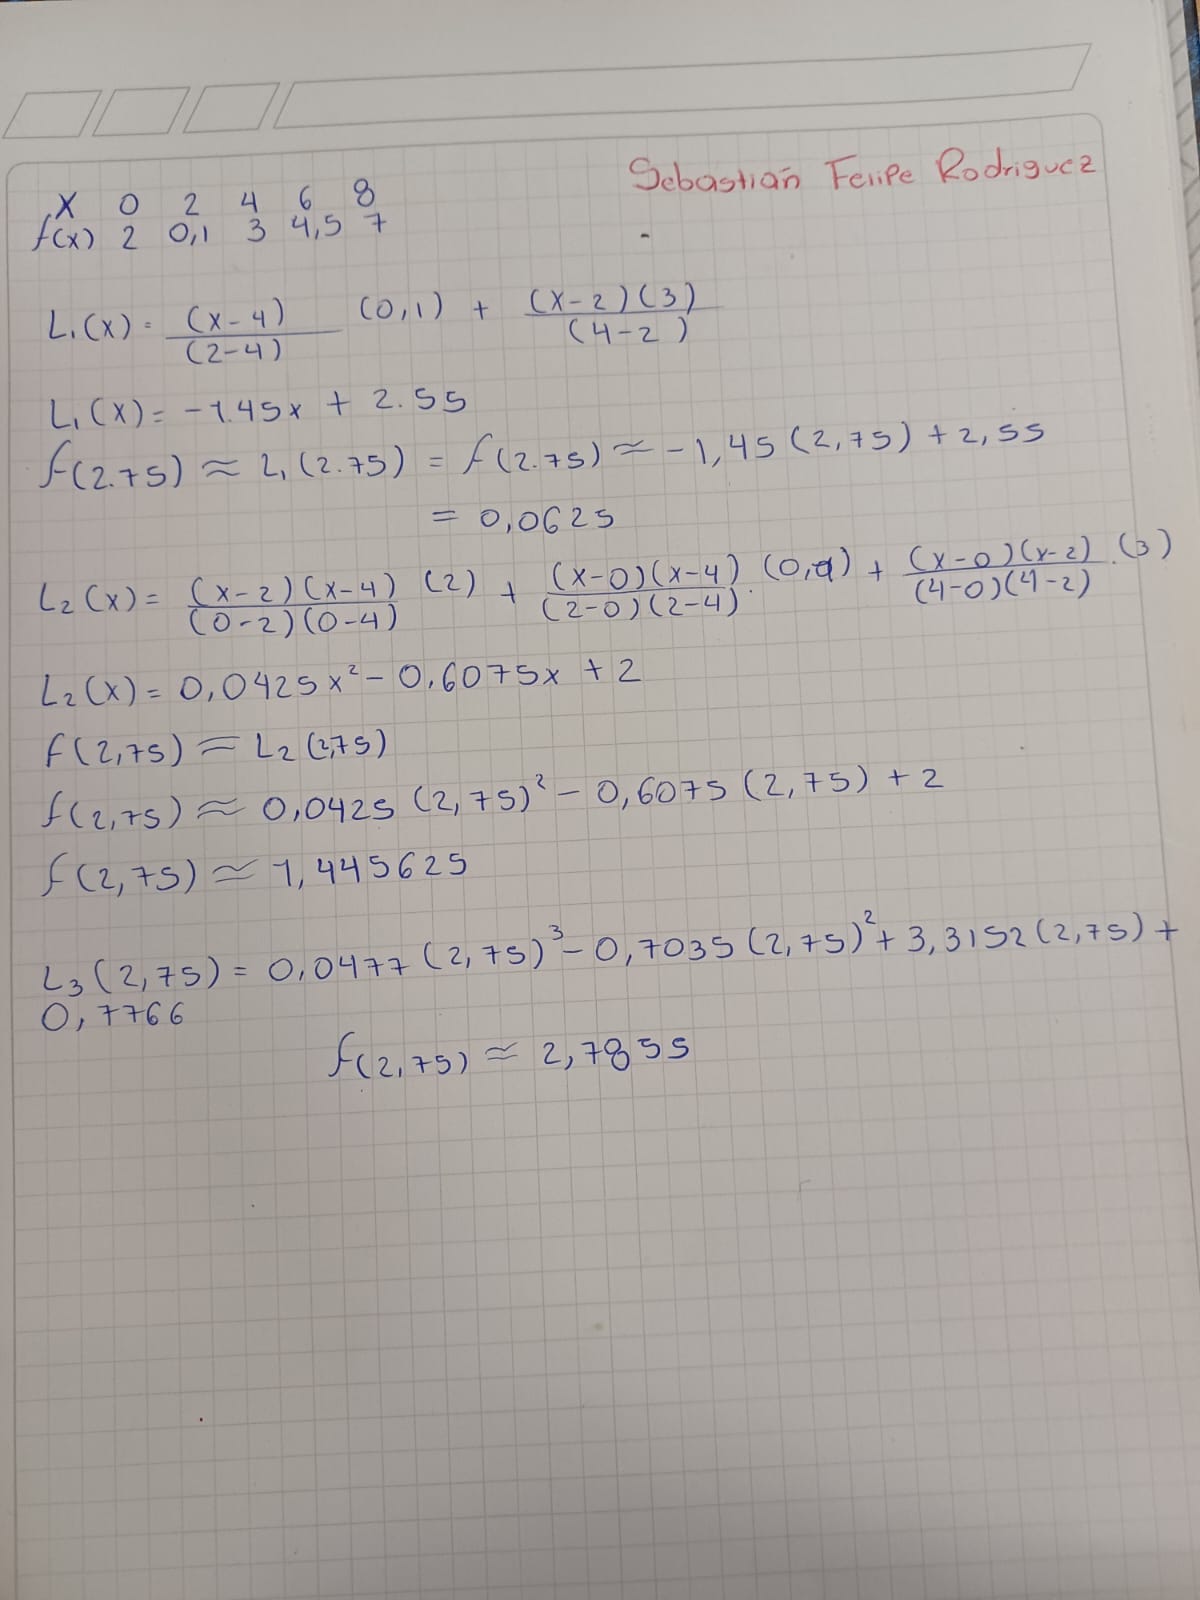 Sebastián Felipe Rodriguez
x 0 2 4 6 8
f(x) 2 0,1 3 4,5 7
L₁(x) = (x-4)/(2-4) (0,1) + (x-2)(3)/(4-2)
L₁(x) = -1.45x + 2.55
f(2.75) ≈ L₁(2.75) = f(2.75) ≈ -1,45(2,75) + 2,55
= 0,0625
L₂(x) = (x-2)(x-4)/(0-2)(0-4) (2) + (x-0)(x-4)/(2-0)(2-4) · (0,1) + (x-0)(x-2)/(4-0)(4-2) · (3)
L₂(x) = 0,0425x² - 0,6075x + 2
f(2,75) ≈ L₂(2,75)
f(2,75) ≈ 0,0425(2,75)² - 0,6075(2,75) + 2
f(2,75) ≈ 1,445625
L₃(2,75) = 0,0477(2,75)³ - 0,7035(2,75)² + 3,3152(2,75) +
0,7766
f(2,75) ≈ 2,7855